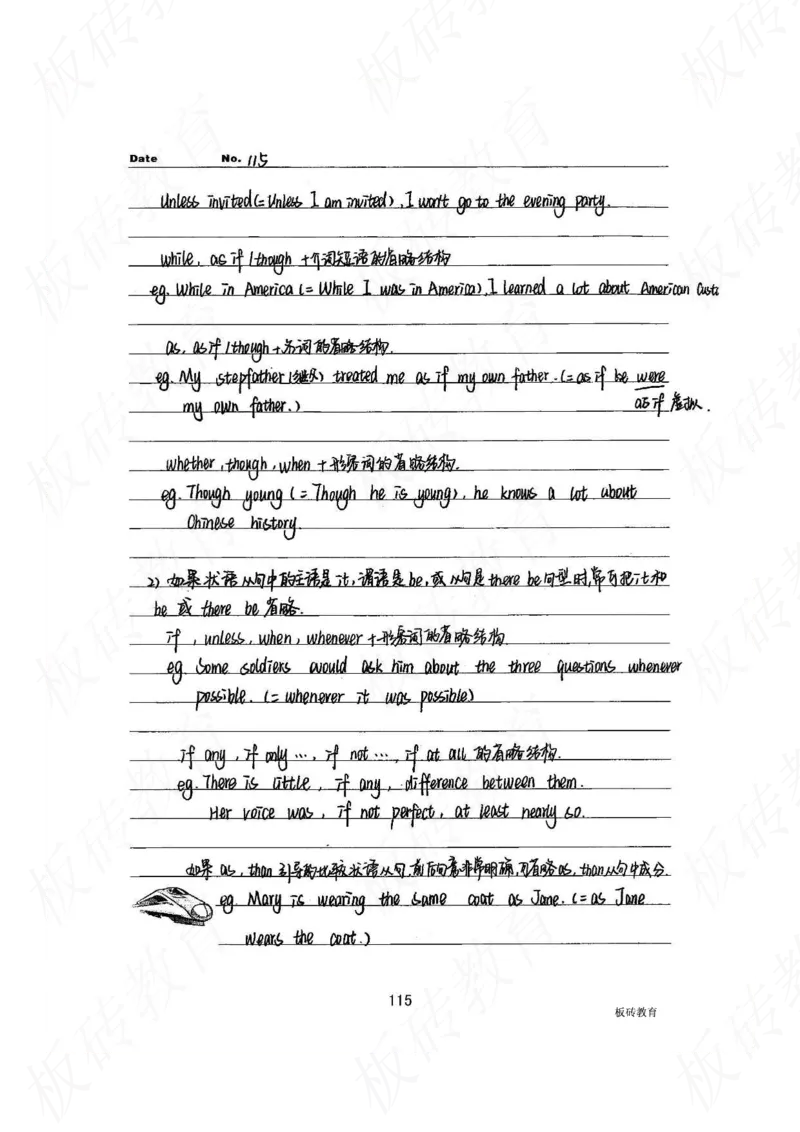 Date No. 115
Unless invited (= Unless I am invited), I won't go to the evening party.
while, as if / though + 介词短语的省略结构
eg. While in America (= While I was in America), I learned a lot about American
as, as if / though + 名词的省略结构.
eg. My stepfather (继父) treated me as if my own father. (= as if he were
my own father.) as if 虚拟.
whether, though, when + 形容词的省略结构.
eg. Though young (= Though he is young), he knows a lot about
Chinese history.
2) 如果状语从句中的主语是 it, 谓语是 be, 或从句是 there be 句型时, 常可把 it 和
be 或 there be 省略.
if, unless, when, whenever + 形容词的省略结构
eg. Some soldiers would ask him about the three questions whenever
possible. (= whenever it was possible)
if any, if only …, if not …, if at all 的省略结构.
eg. There is little, if any, difference between them.
Her voice was, if not perfect, at least nearly so.
如果 as, than 引导的比较状语从句, 前后句意非常明确, 可省略 as, than 从句中成分.
eg. Mary is wearing the same coat as Jane. (= as Jane
wears the coat.)
115
板砖教育